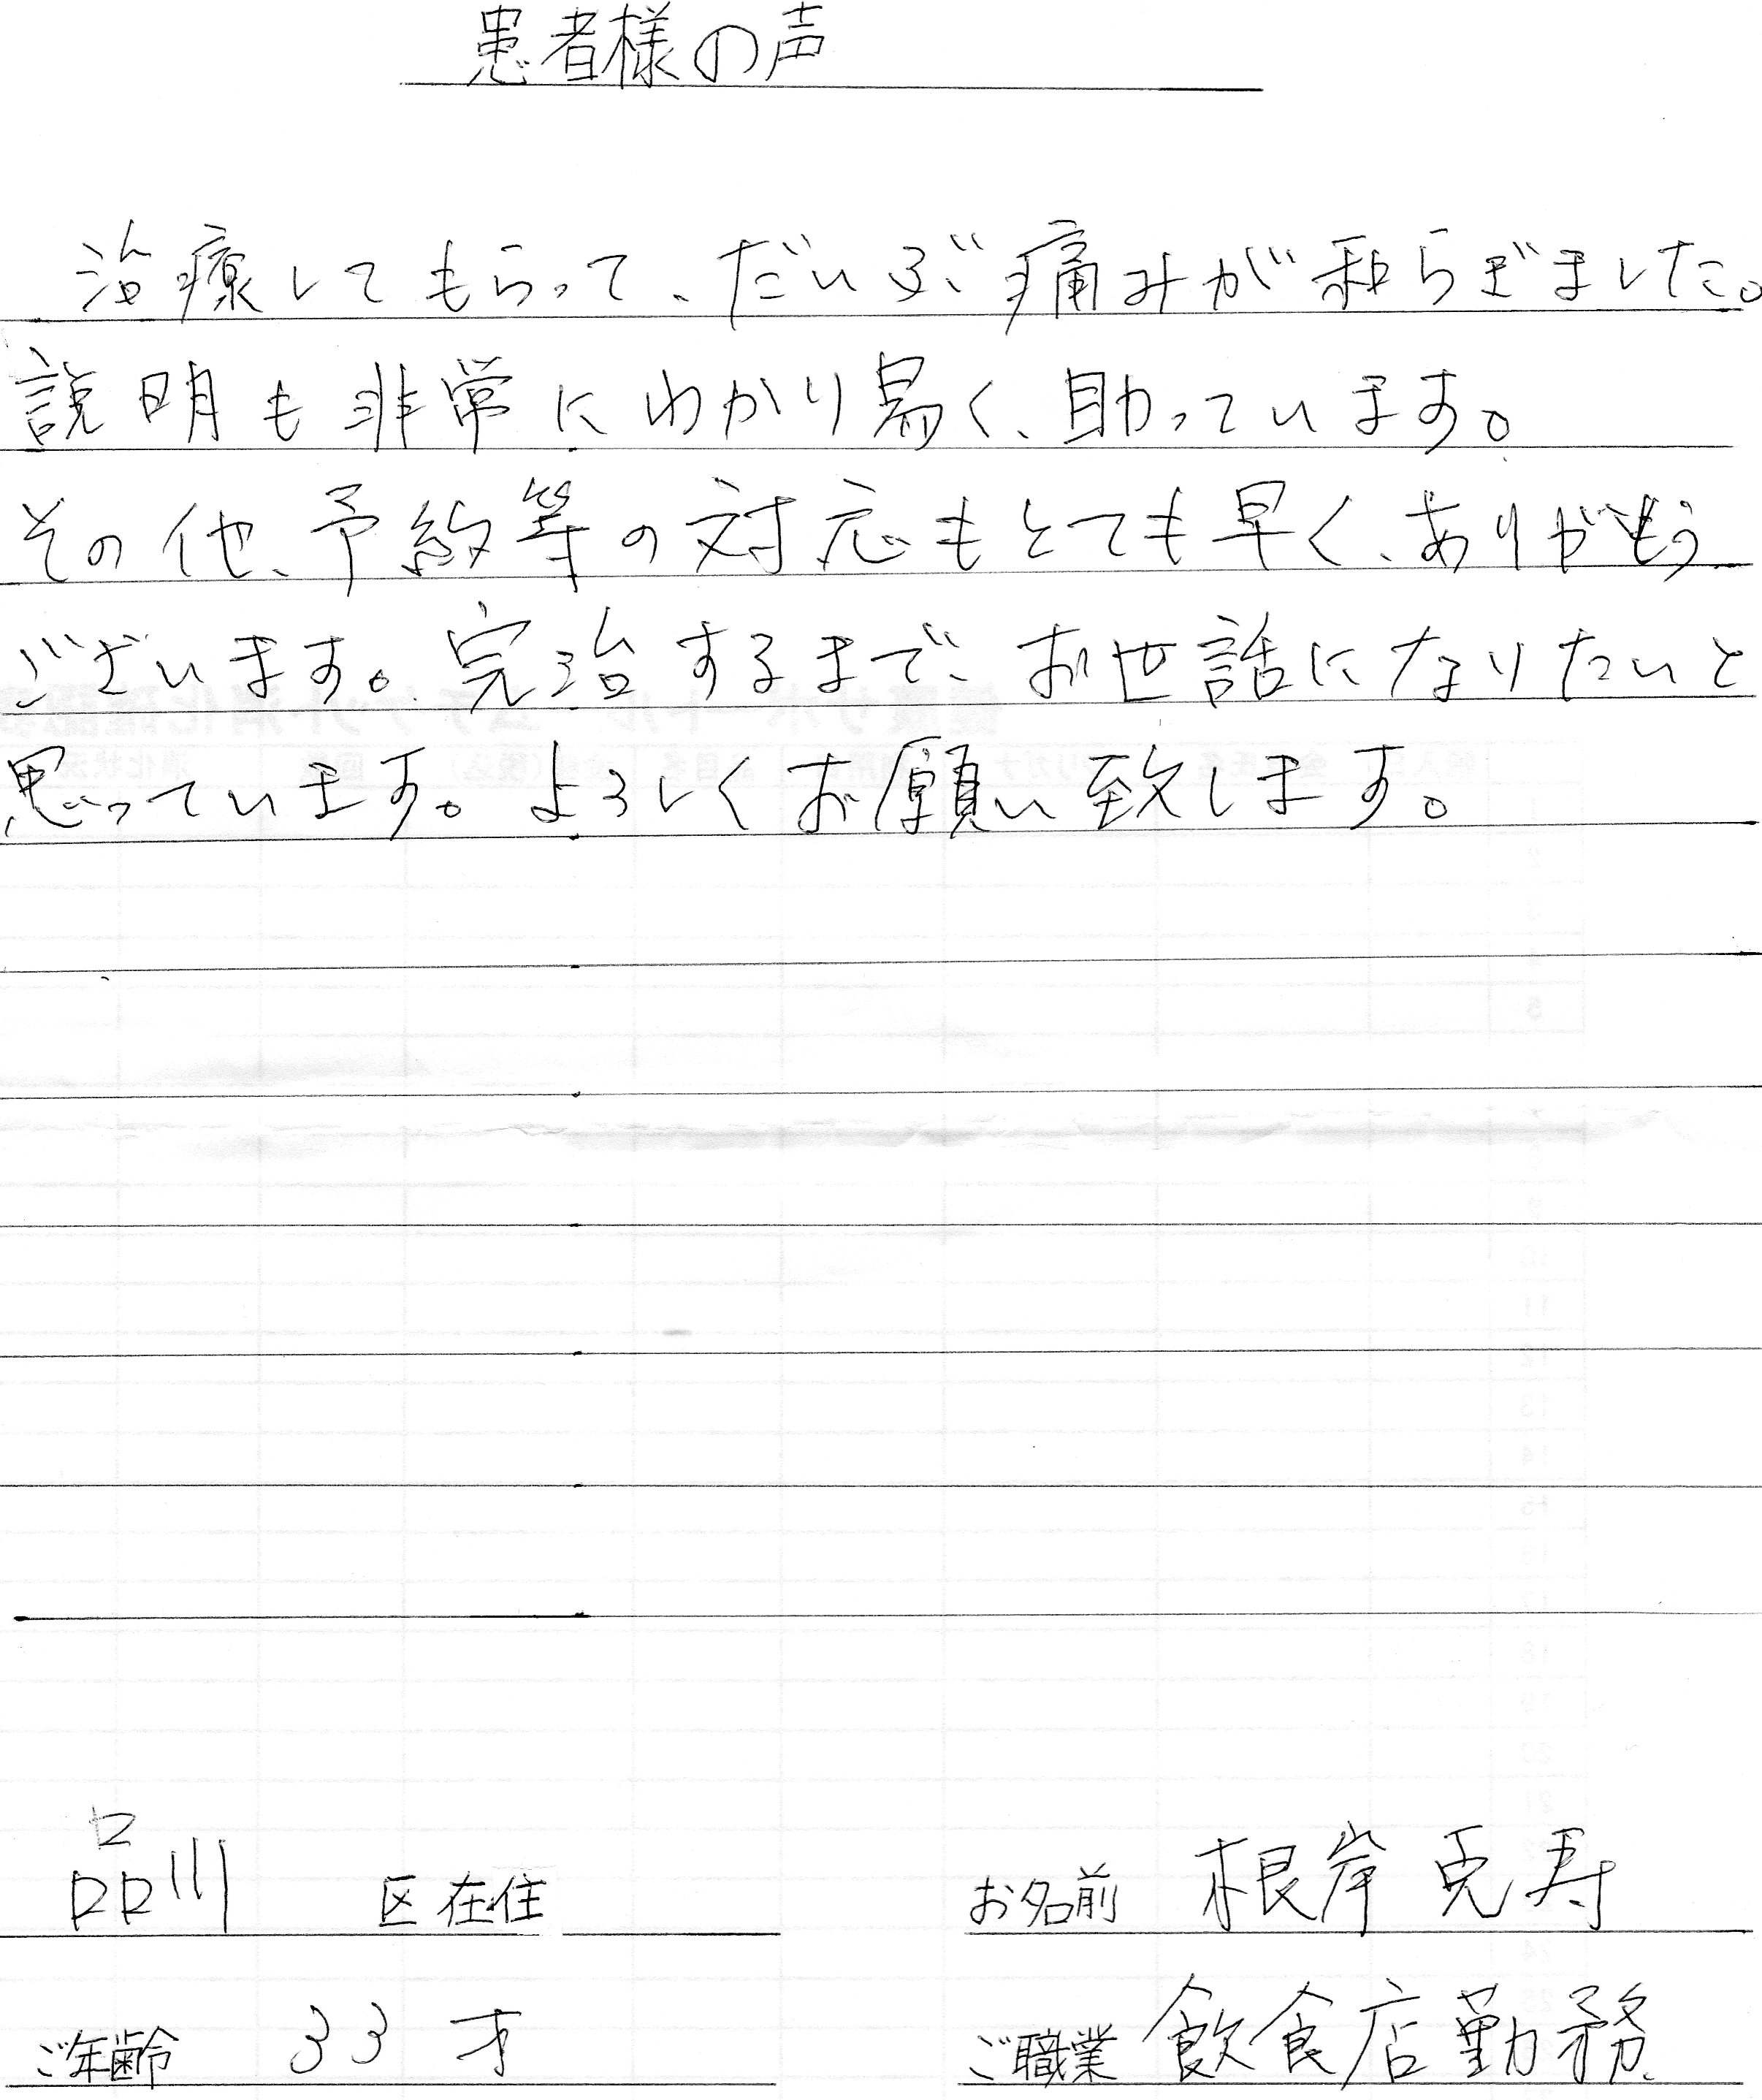 患者様の声
治療してもらって、だいぶ痛みが和らぎました。
説明も非常にわかり易く、助っています。
その他、予約等の対応もとても早く、ありがとう
ございます。完治するまで、お世話になりたいと
思っています。よろしくお願い致します。
品川 区在住
お名前 根岸克寿
ご年齢 33才
ご職業 飲食店勤務